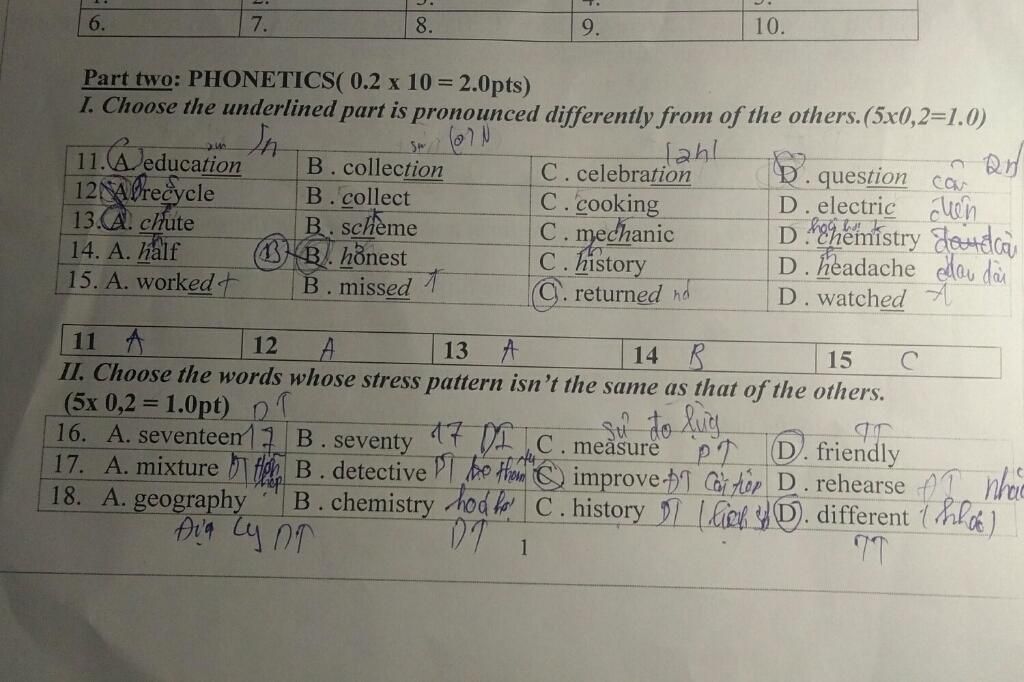 6. 7. 8. 9. 10.
Part two: PHONETICS( 0.2 x 10 = 2.0pts)
I. Choose the underlined part is pronounced differently from of the others.(5x0,2=1.0)
11. A. education B . collection C . celebration D . question
12. A. recycle B . collect C . cooking D . electric
13. A. chute B . scheme C . mechanic D . chemistry
14. A. half B B . honest C . history D . headache
15. A. worked t B . missed t C . returned D . watched t
11 A 12 A 13 A 14 B 15 C
II. Choose the words whose stress pattern isn't the same as that of the others.
(5x 0,2 = 1.0pt) DT
16. A. seventeen 17 B . seventy 17 DT C . measure DT D . friendly TT
17. A. mixture DT B . detective DT C . improve ĐT D . rehearse ĐT
18. A. geography B . chemistry C . history DT D . different
Địa Lý DT DT 1 TT